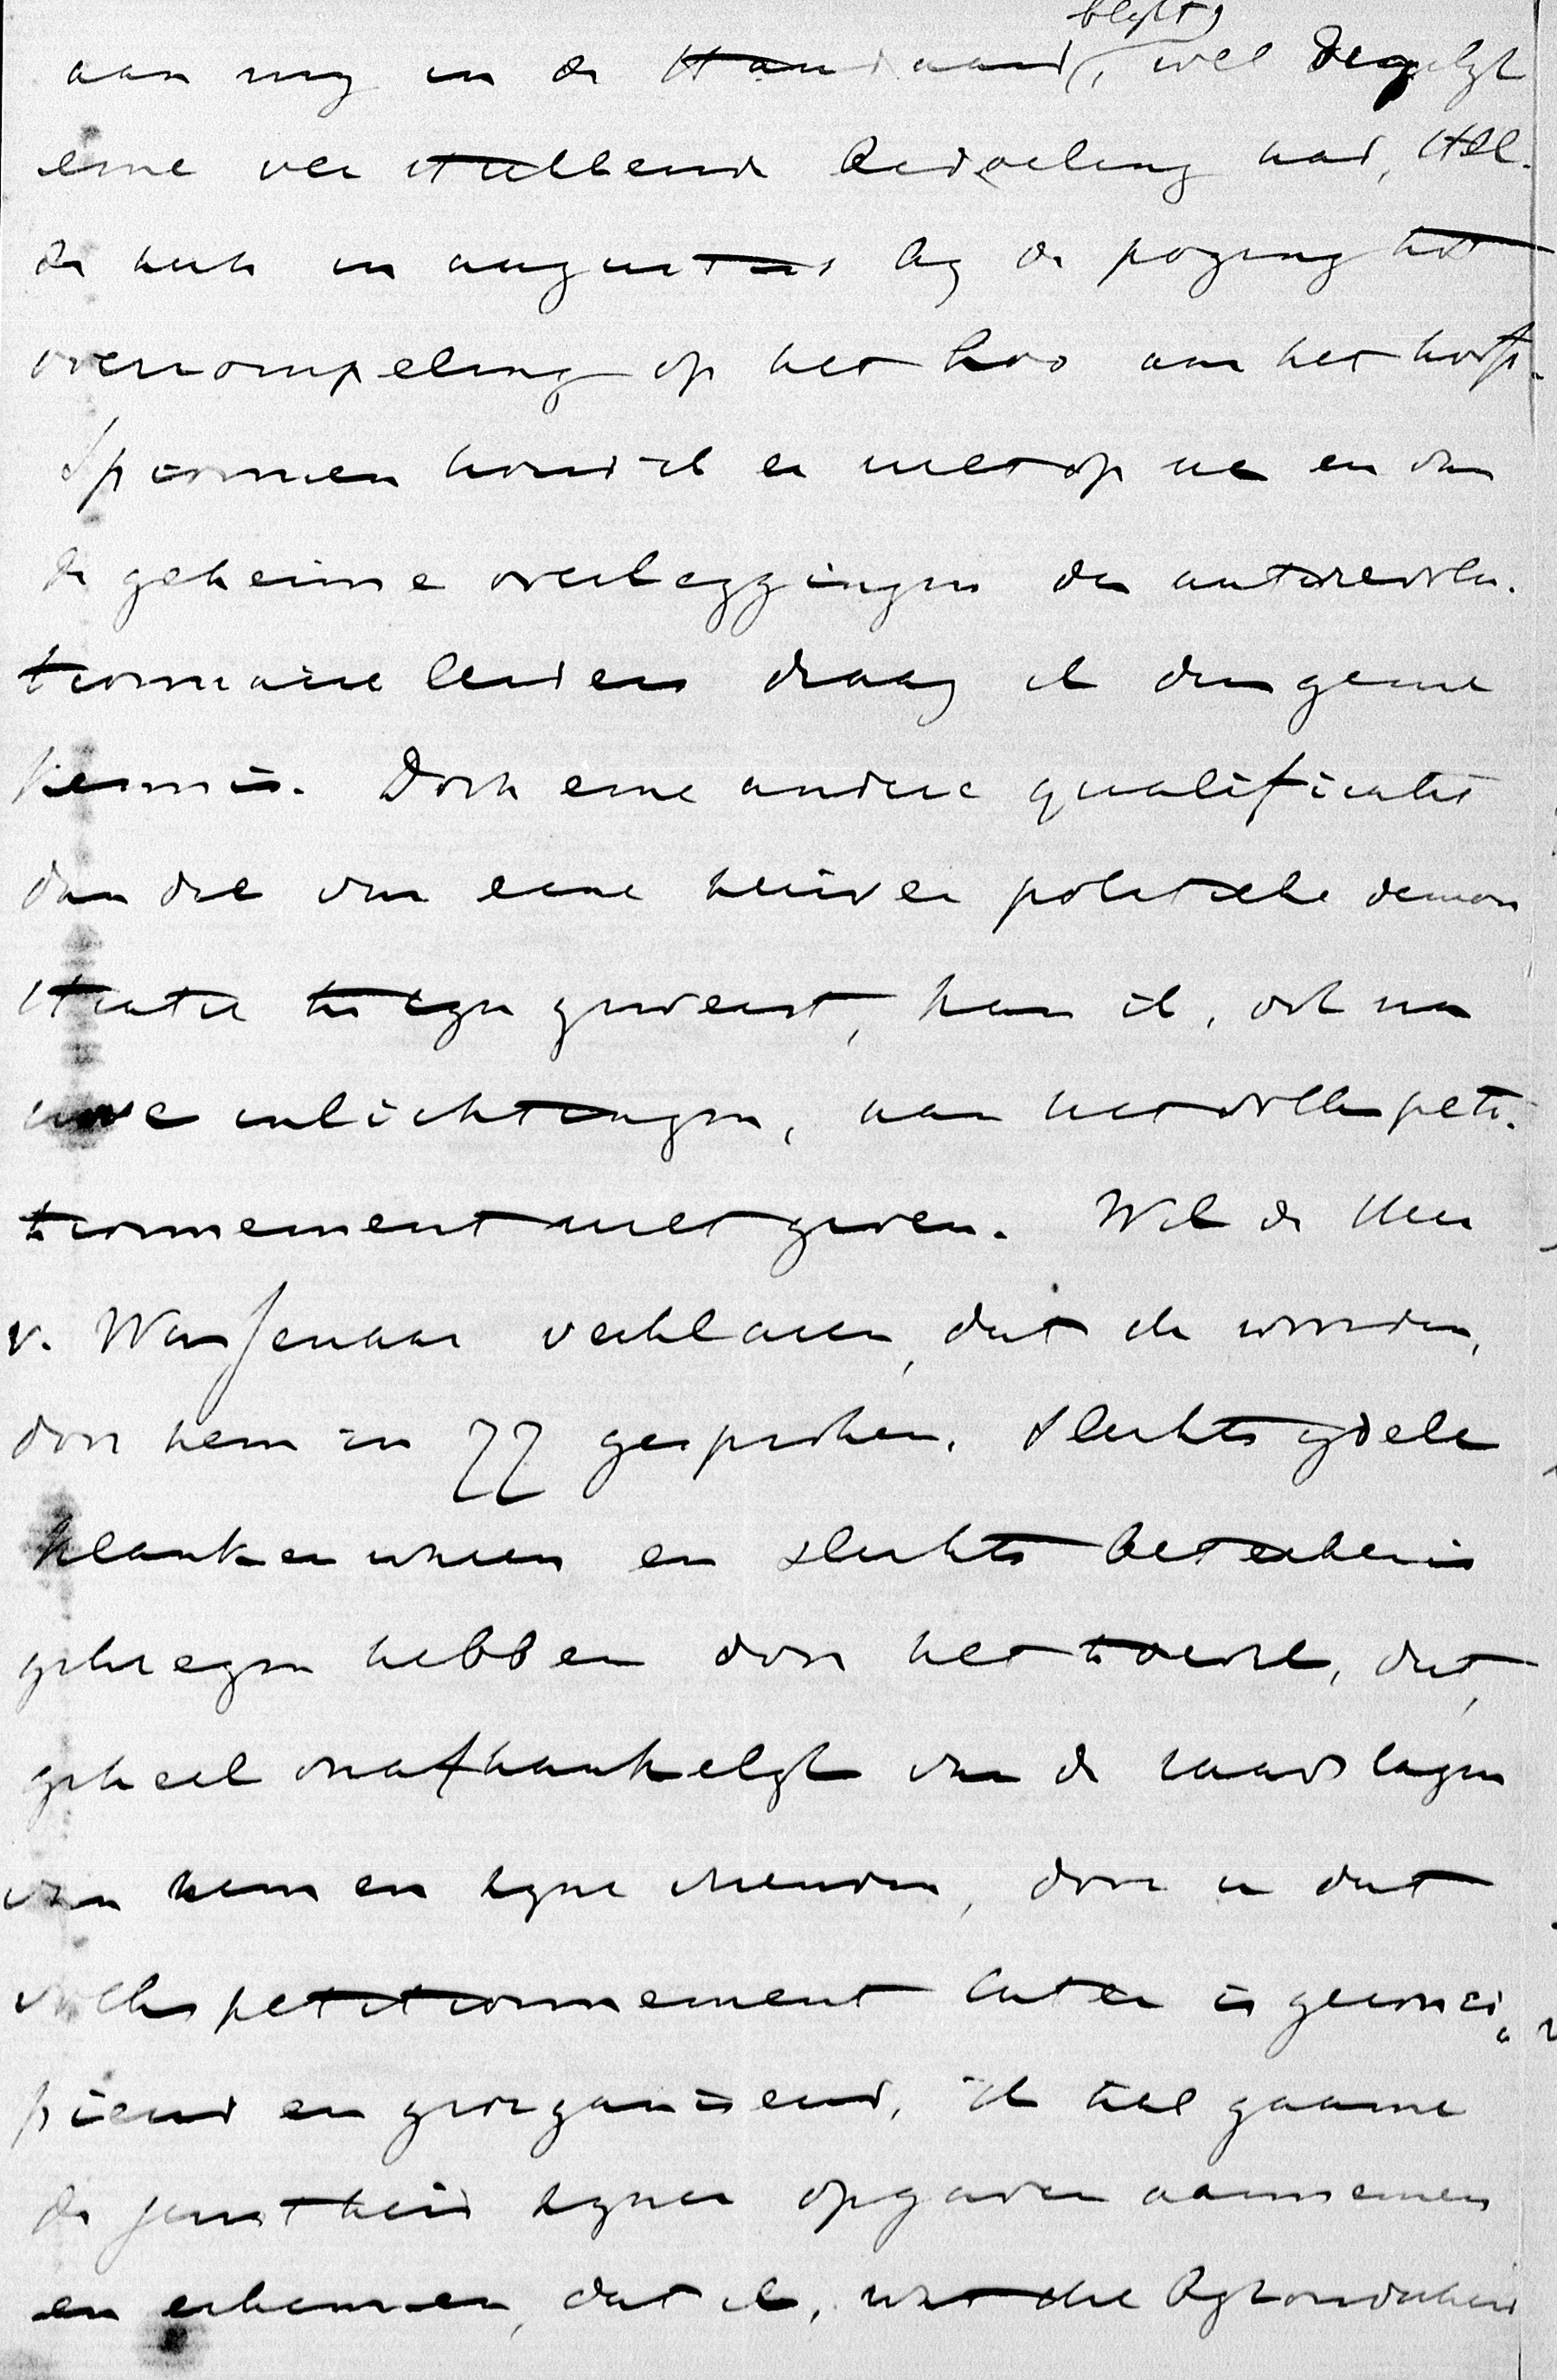 blijkt,
aan mij in de Standaard, wel degelijk
eene ver strekkende bedoeling had,
de hulp in augustus bij de poging tot
overrompeling op het Loo aan het hoofd.
Spionnen houd ik er niet op na en van
de geheime overleggingen der antirevolu-
tionnaire leiders draag ik dus geene
kennis. Doch eene andere qualificatie
dan die van eene zuiver politieke demon
stratie te zijn geweest, kan ik, ook na
uwe inlichtingen, aan het volkspeti-
tionnement niet geven. Wil de Heer
v. Wassenaar verklaren, dat de woorden,
door hem in 77 gesproken, slechts ijdele
klanken waren en slechts beteekenis
gekregen hebben door het toeval, dat,
geheel onafhankelijk van de raadslagen
van hem en zijne vrienden, door u dat
volkspetitionnement later is geconci-
pieerd en georganiseerd, ik zal gaarne
de juistheid zijner opgaven aannemen
en erkennen, dat ik, wat die bijzonderheid